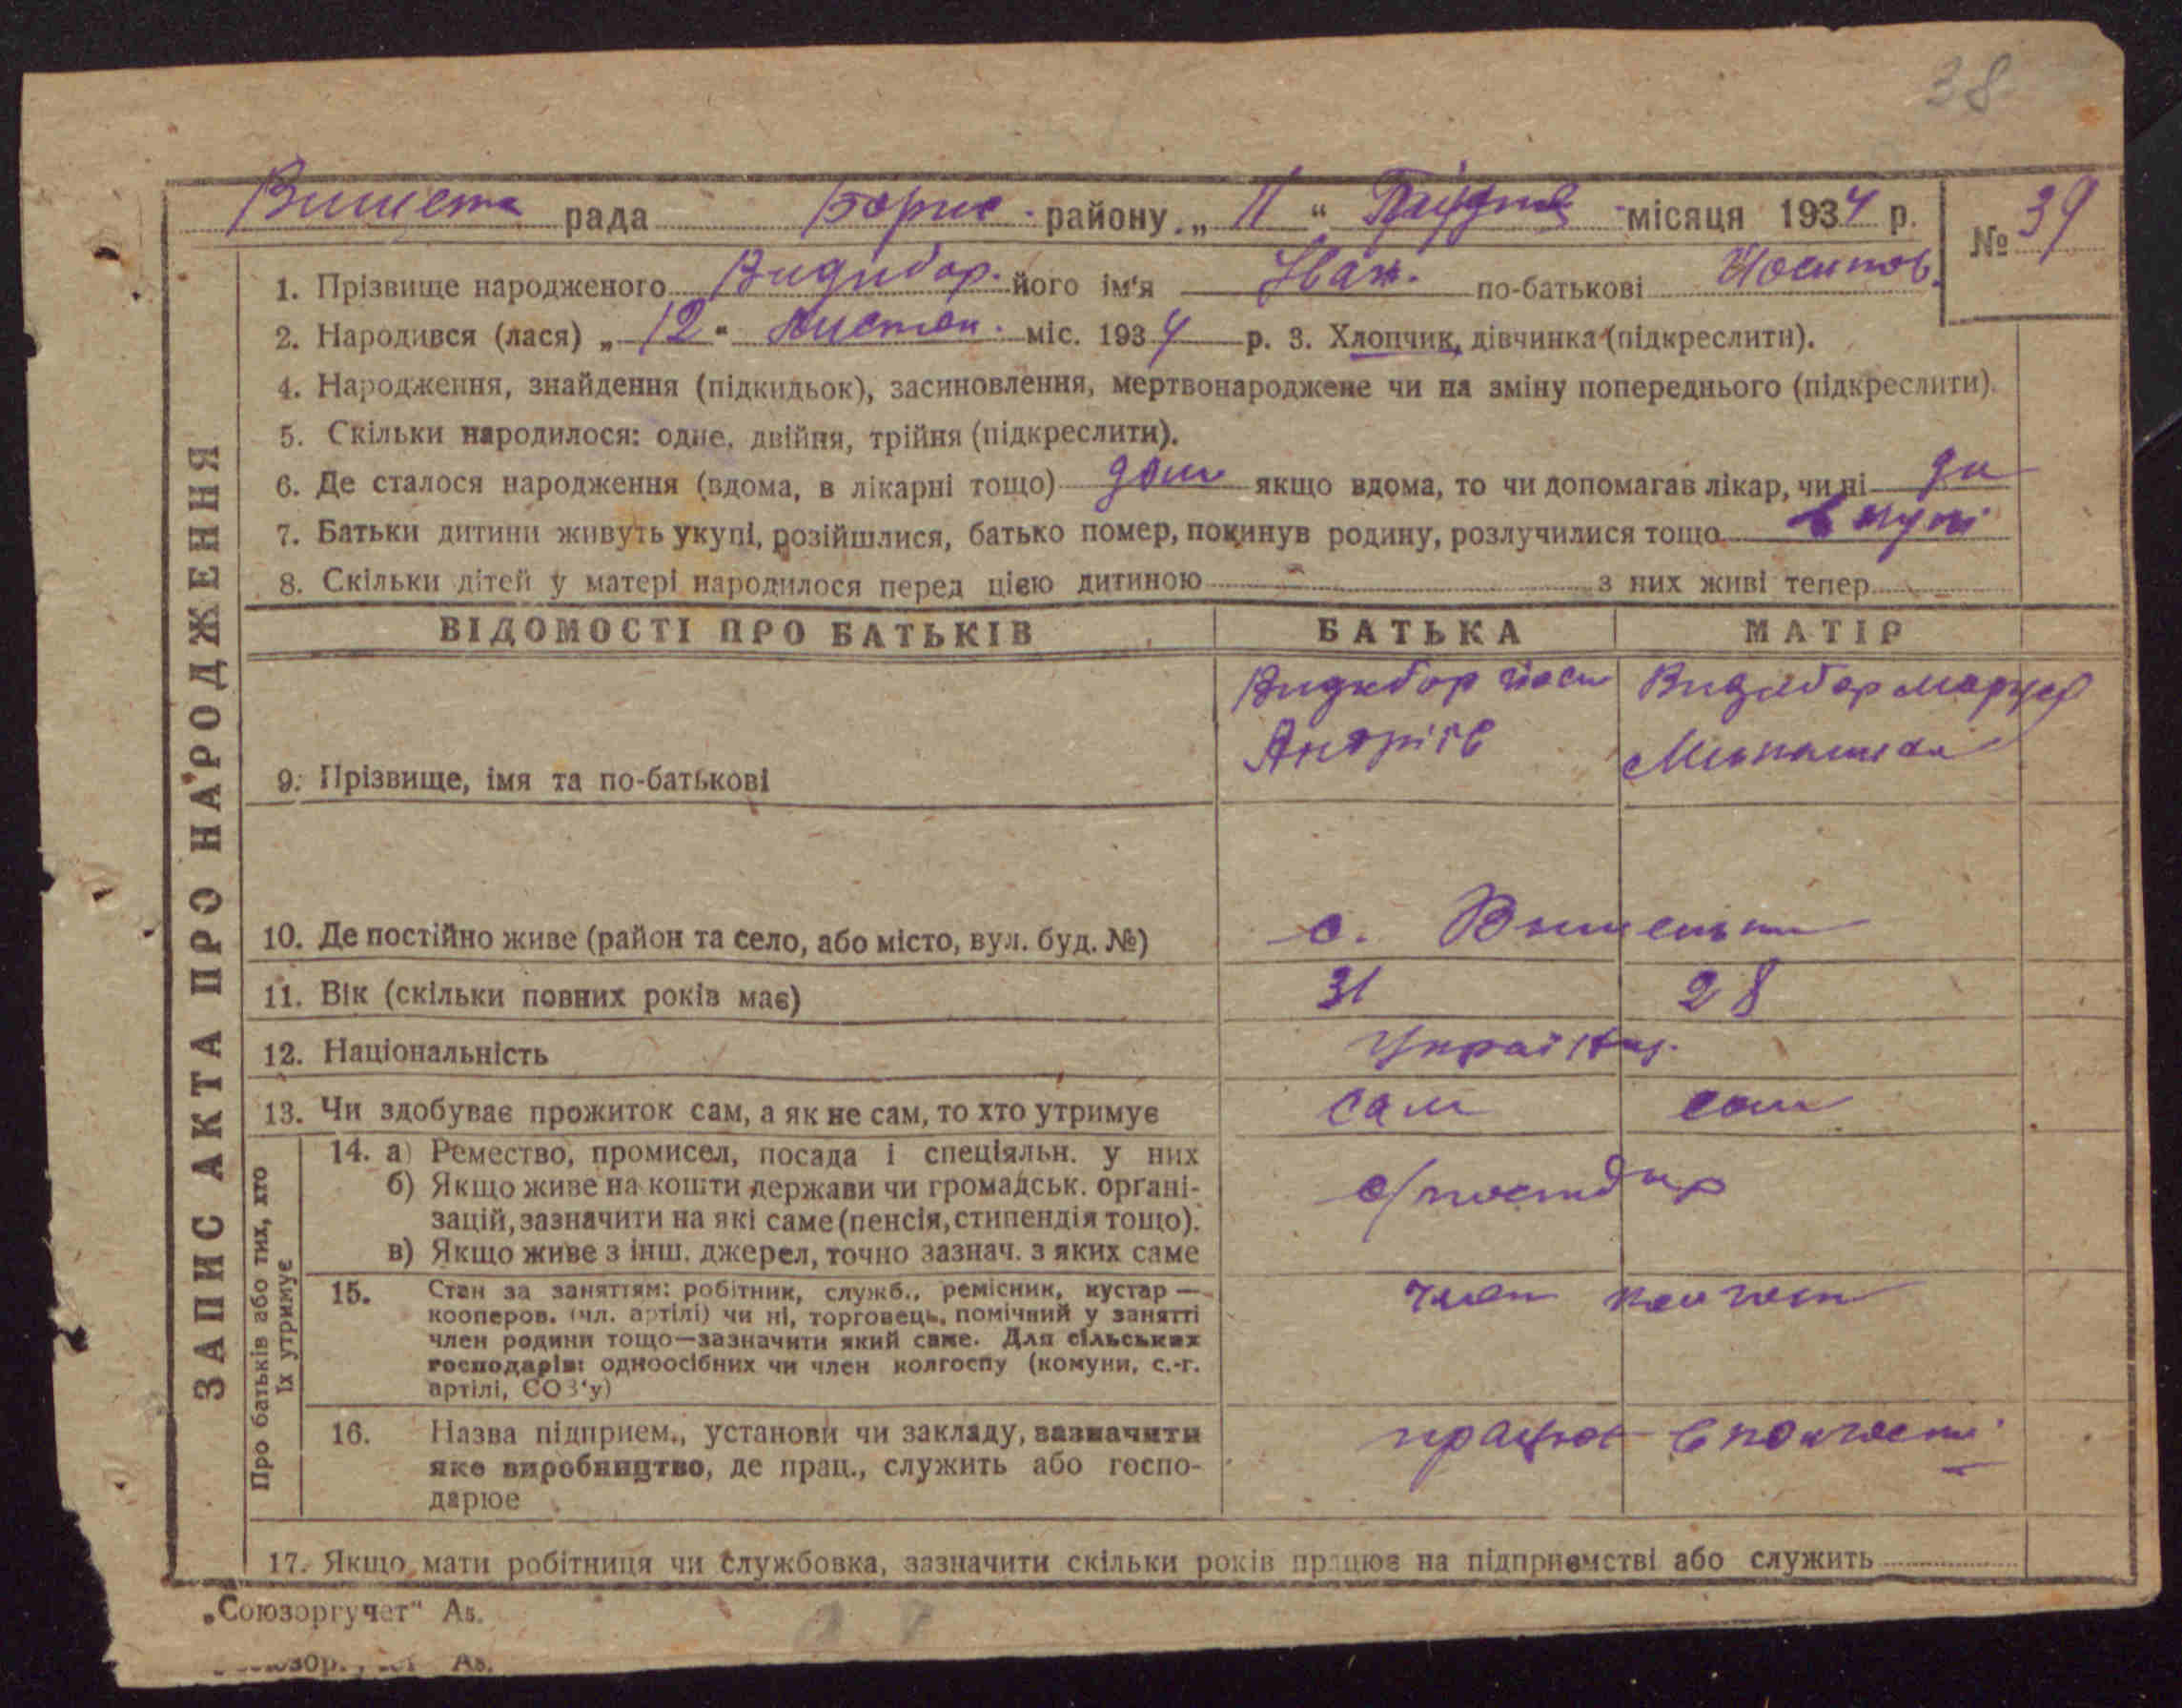 38
рада Борис. району „ 11 “ Грудня місяця 1934 р.
№ 39
1. Прізвище народженого Видибор. його ім'я Іван. по-батькові Йосипов.
2. Народився (лася) „ 12 “ Листоп. міс. 1934 р. 3. Хлопчик, дівчинка (підкреслити).
4. Народження, знайдення (підкидьок), засиновлення, мертвонароджене чи на зміну попереднього (підкреслити).
5. Скільки народилося: одне, двійня, трійня (підкреслити).
6. Де сталося народження (вдома, в лікарні тощо) якщо вдома, то чи допомагав лікар, чи ні
7. Батьки дитини живуть укупі, розійшлися, батько помер, покинув родину, розлучилися тощо вкупі
8. Скільки дітей у матері народилося перед цією дитиною з них живі тепер
ЗАПИС АКТА ПРО НАРОДЖЕННЯ
ВІДОМОСТІ ПРО БАТЬКІВ БАТЬКА МАТІР
Видибор Йоси Видибор Маруся
Андріїв
9. Прізвище, імя та по-батькові
10. Де постійно живе (район та село, або місто, вул. буд. №) с.
11. Вік (скільки повних років має) 31 28
12. Національність Україн.
13. Чи здобуває прожиток сам, а як не сам, то хто утримує сам сам
Про батьків або тих, хто
їх утримує
14. а) Ремество, промисел, посада і спеціяльн. у них
б) Якщо живе на кошти держави чи громадськ. орґані-
зацій, зазначити на які саме (пенсія, стипендія тощо).
в) Якщо живе з інш. джерел, точно зазнач. з яких саме
15. Стан за заняттям: робітник, служб., ремісник, кустар —
кооперов. (чл. артілі) чи ні, торговець, помічний у занятті
член родини тощо—зазначити який саме. Для сільських
господарів: одноосібних чи член колгоспу (комуни, с.-г.
артілі, СОЗ'у)
член колгосп
16. Назва підприєм., установи чи закладу, зазначити
яке виробництво, де прац., служить або госпо-
дарює
працює в колгоспі
17. Якщо мати робітниця чи службовка, зазначити скільки років працює на підприємстві або служить
„Союзоргучет“ Аs.